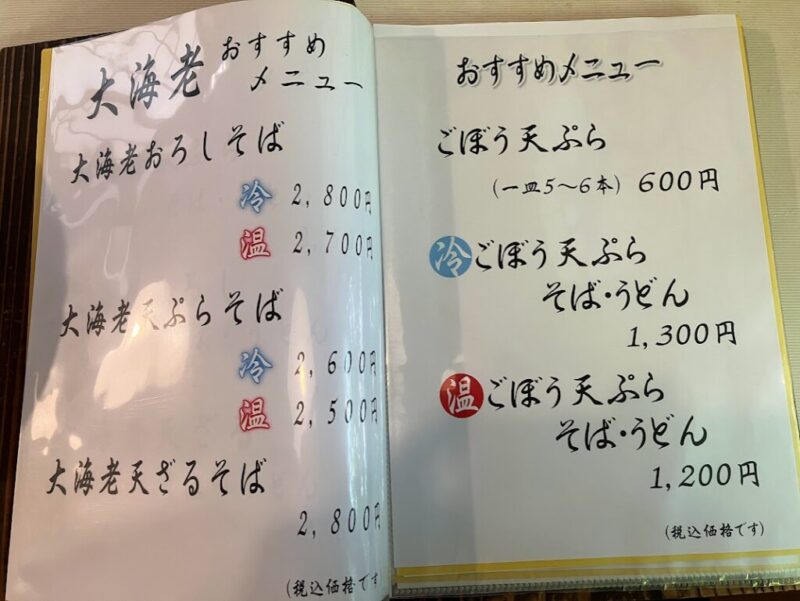 大海老 おすすめ
メニュー
大海老おろしそば
冷 2,800円
温 2,700円
大海老天ぷらそば
冷 2,600円
温 2,500円
大海老天ざるそば
2,800円
(税込価格です
おすすめメニュー
ごぼう天ぷら
(一皿5～6本) 600円
冷 ごぼう天ぷら
そば・うどん
1,300円
温 ごぼう天ぷら
そば・うどん
1,200円
(税込価格です)